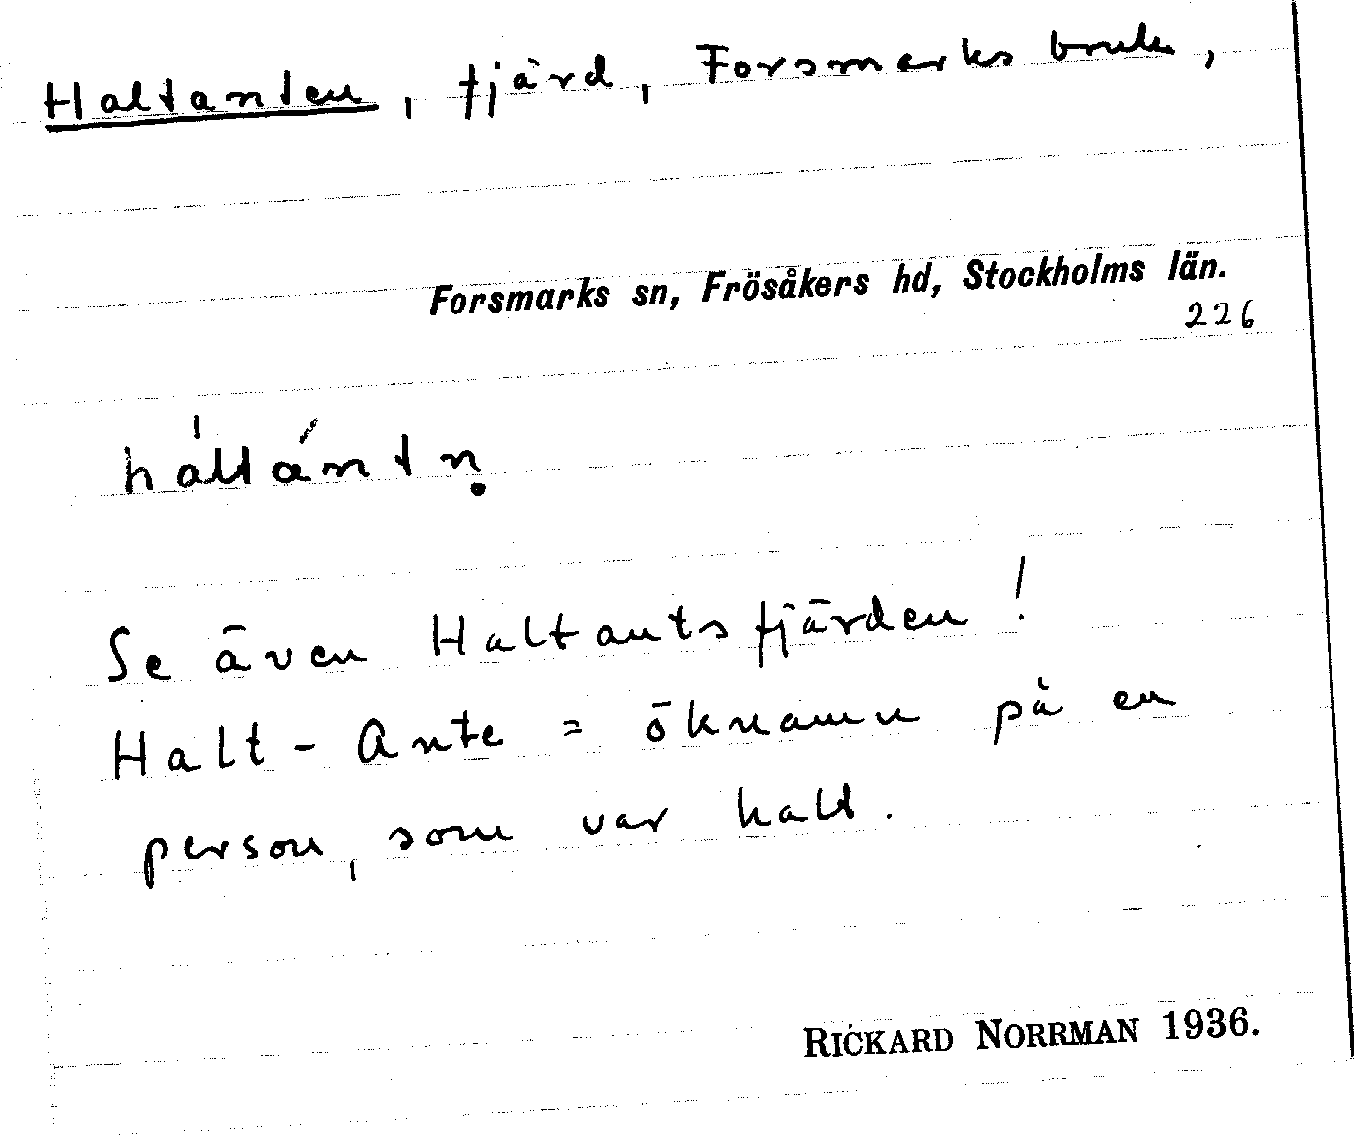 Haltanten, fjärd, Forsmarks bruk,
Forsmarks sn, Frösåkers hd, Stockholms län.
226
hàltántṇ
Se även Haltantsfjärden!
Halt-Ante = öknamn på en
person, som var halt.
RICKARD NORRMAN 1936.